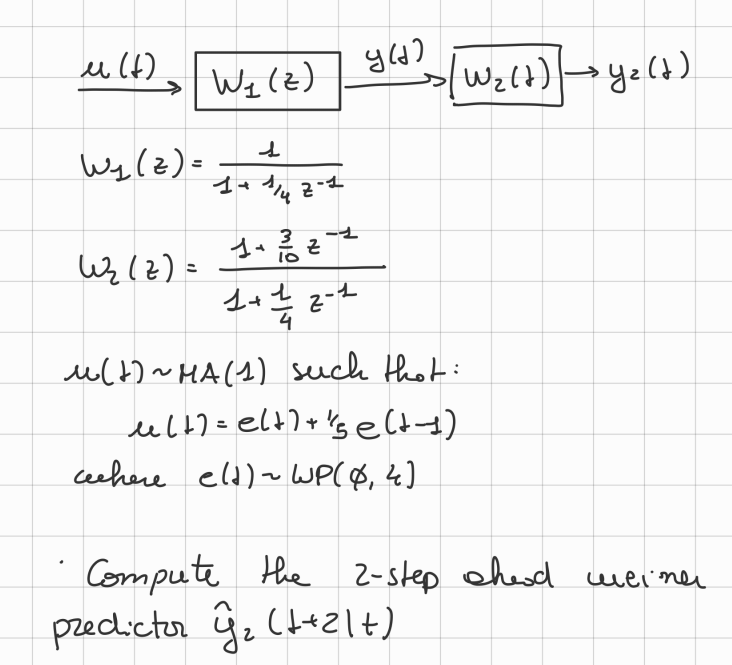 u(t) W₁(z) y(t) W₂(t) y₂(t)
W₁(z) = 1 / (1 + 1/4 z⁻¹)
W₂(z) = (1 + 3/10 z⁻¹) / (1 + 1/4 z⁻¹)
u(t) ~ MA(1) such that:
u(t) = e(t) + 1/5 e(t-1)
where e(t) ~ WP(∅, 4]
· Compute the 2-step ahead weiner
predictor ŷ₂(t+2|t)